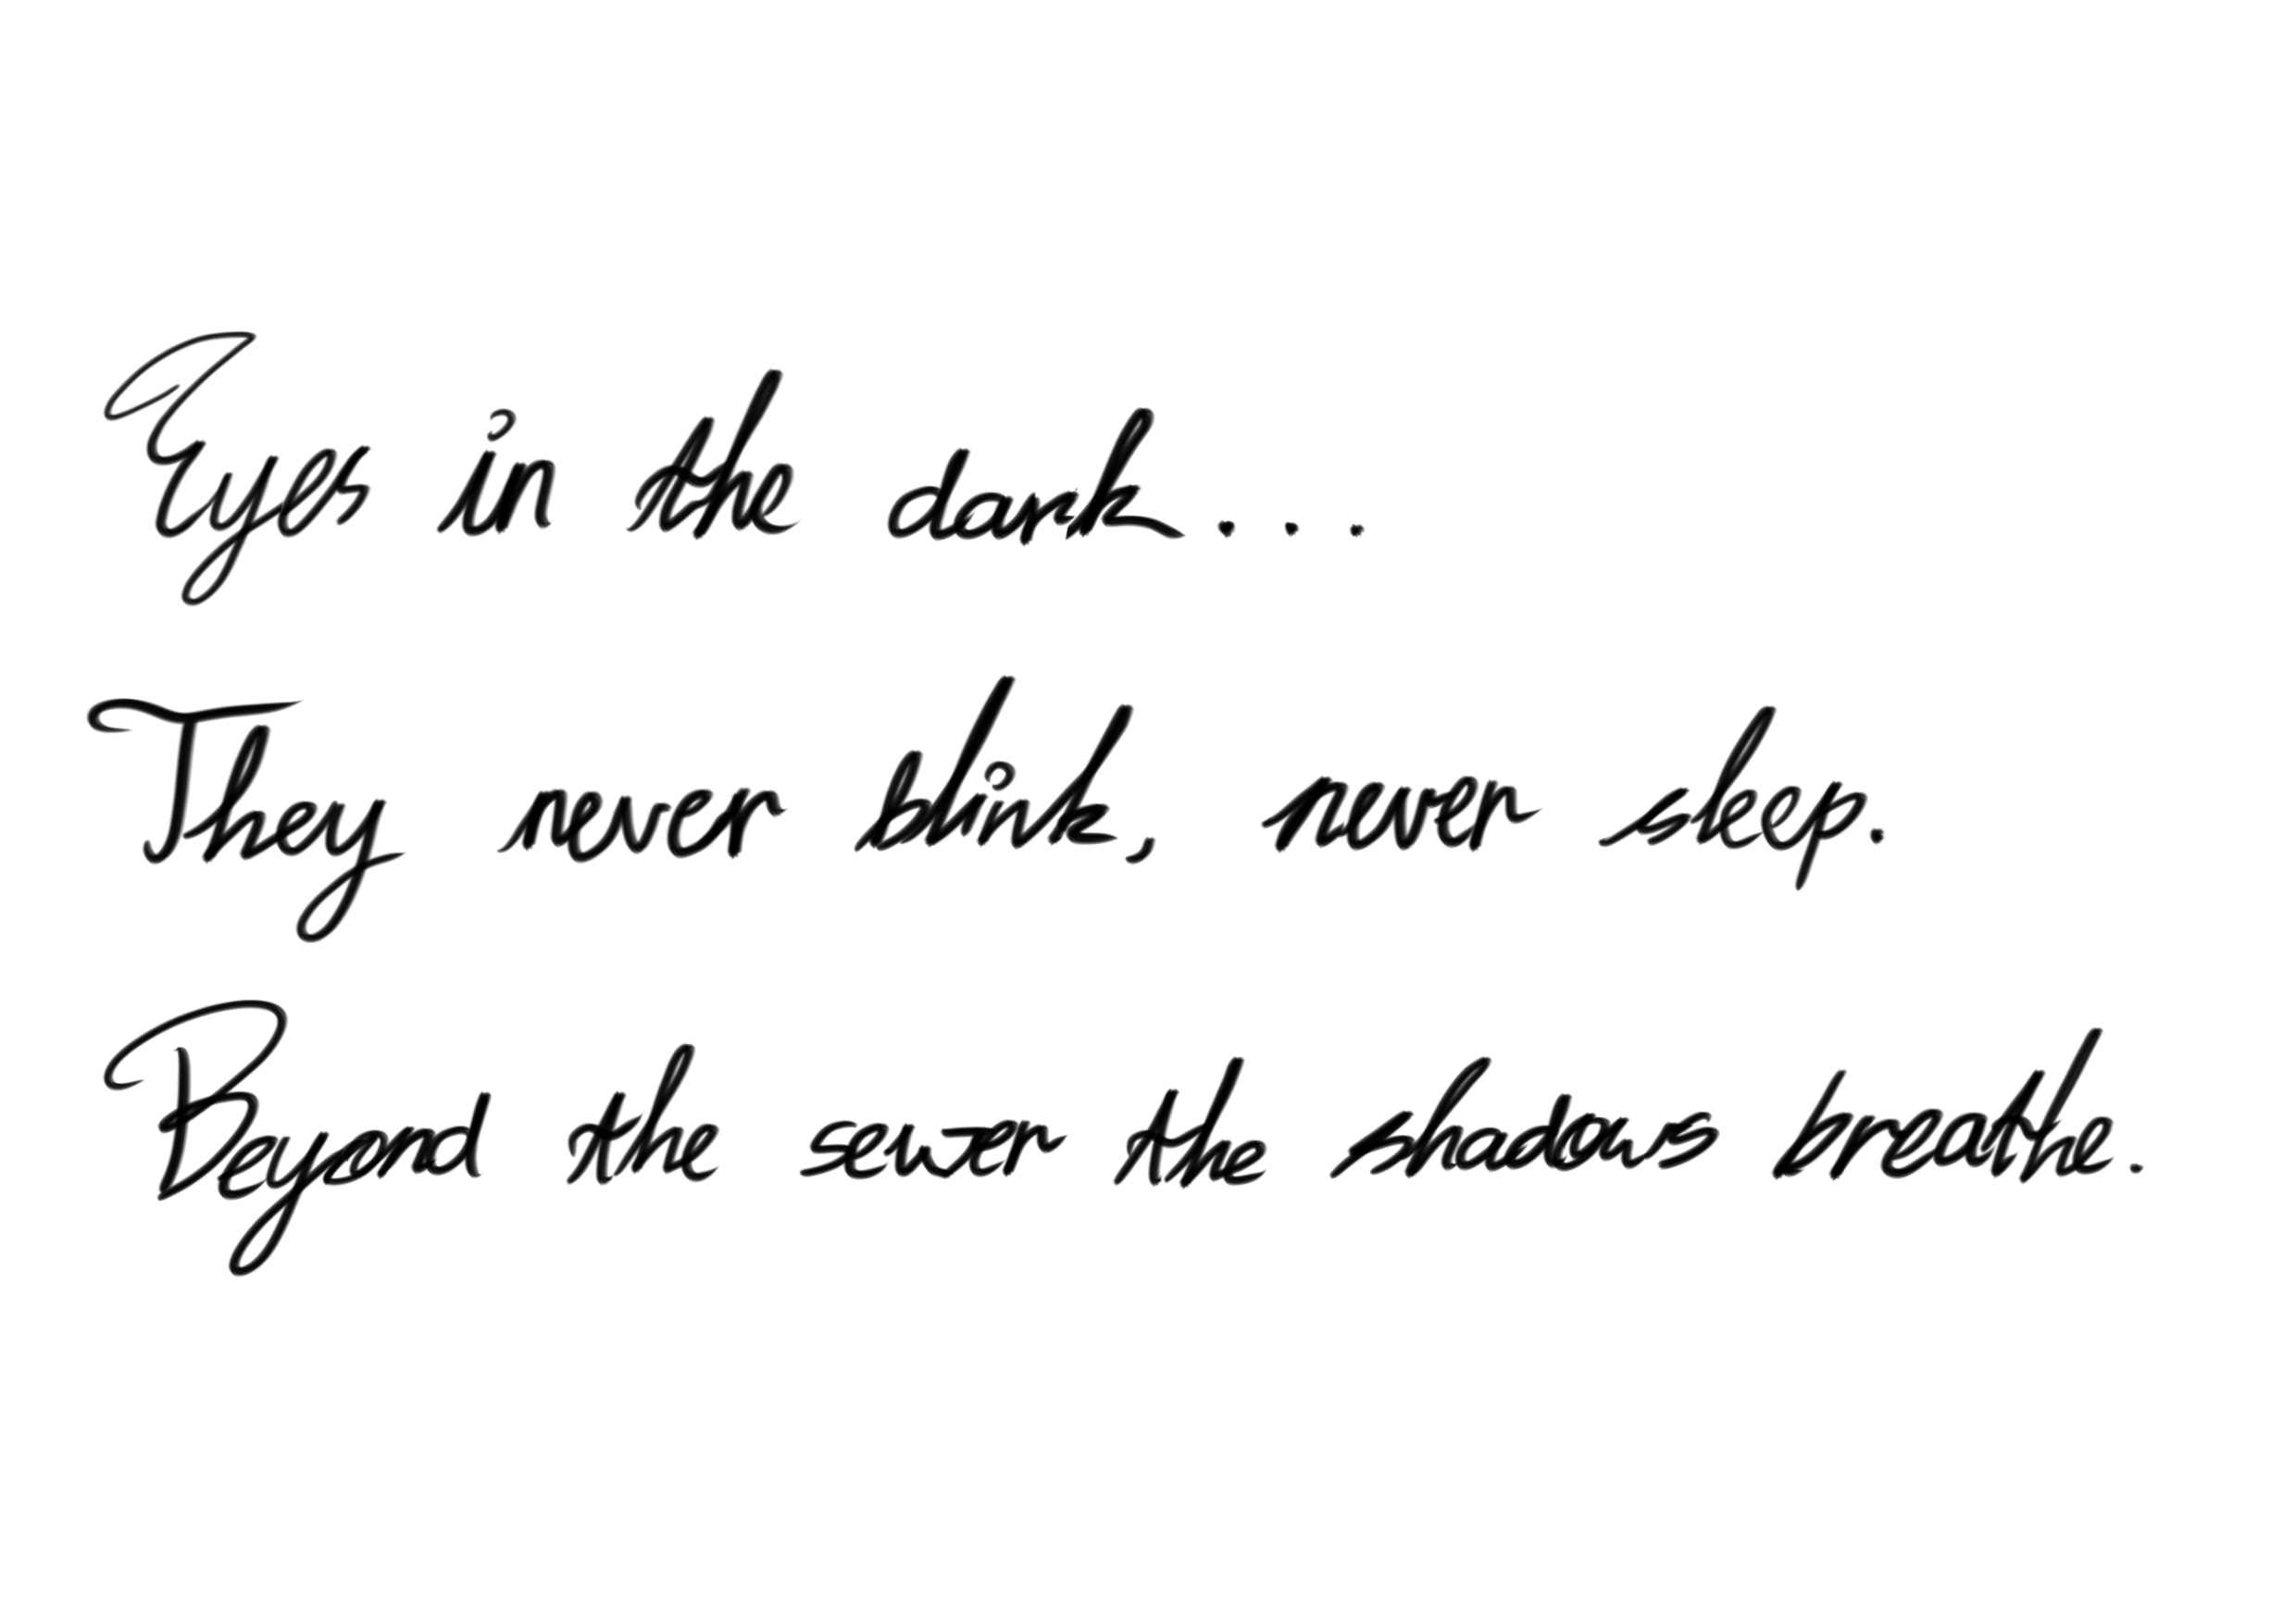 Eyes in the dark...
They never blink, never sleep.
Beyond the sewer the shadows breathe.